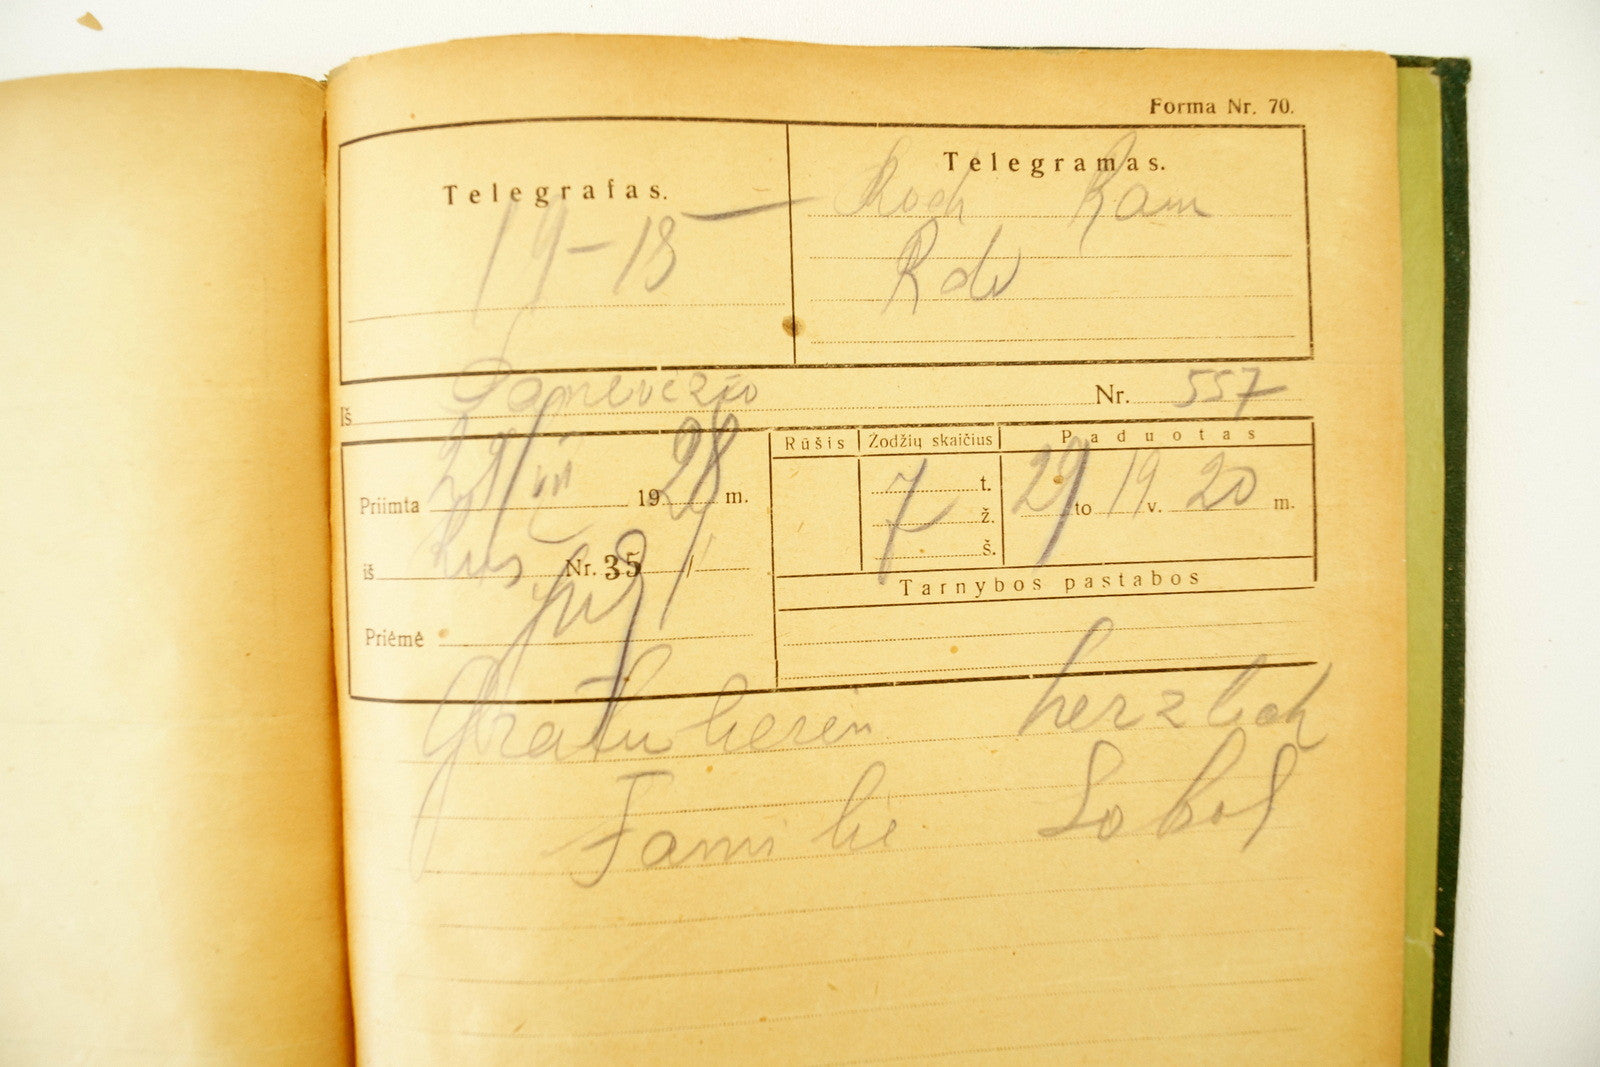 Forma Nr. 70.
Telegrafas.
19-18
Telegramas.
Koch Ram
Rdv
Iš Panevėžio Nr. 557
Priimta 29/VII 1928 m.
iš Nr. 35
Priėmė
Rūšis Žodžių skaičius Paduotas
7 t. ž. š.
29 to 19 v. 20 m.
Tarnybos pastabos
Gratulieren herzlich
Familie Sobol